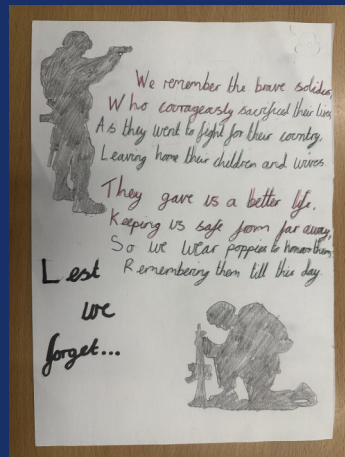 We remember the brave soldiers,
Who courageously sacrificed their lives,
As they went to fight for their country,
Leaving home their children and wives.
They gave us a better life,
Keeping us safe form far away,
So we wear poppies to honour them,
Remembering them till this day.
Lest
we
forget...